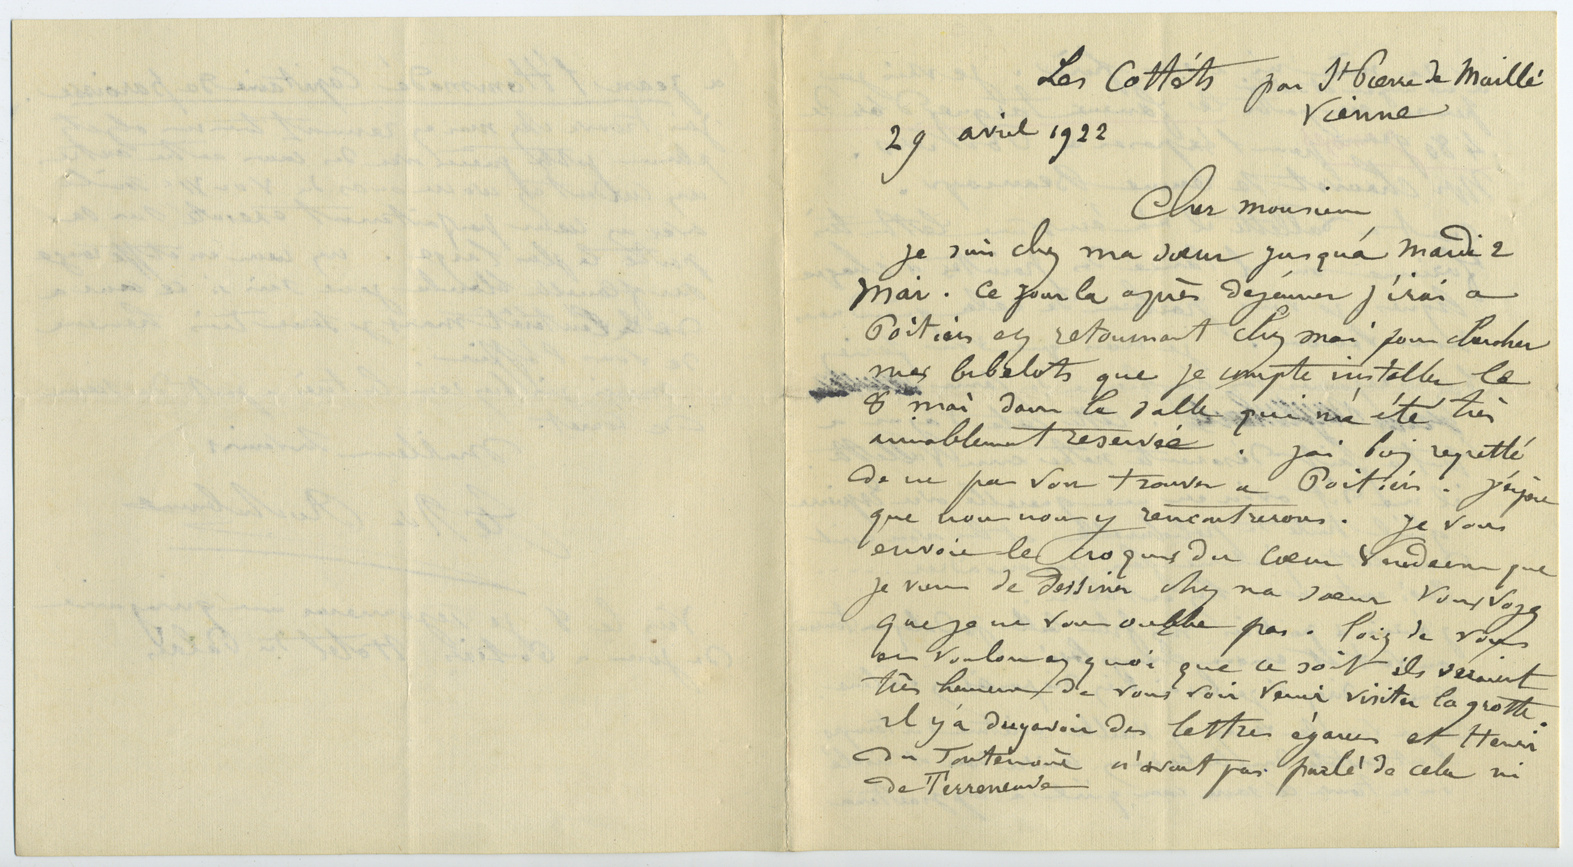 Les Cottés par St Pierre de Maillé
Vienne
29 avril 1922
Cher monsieur
je suis chez ma sœur jusqu'à mardi 2
Mai. Ce jour la après déjeuner j'irai a
Poitiers en retournant chez moi pour chercher
mes bibelots que je compte installer le
8 mai dans la salle qui m'a été très
aimablement reservée. j'ai bien regretté
de ne pas vous trouver a Poitiers. j'espere
que nous nous y rencontrerons. je vous
envoie le croquis du cœur Vendéen que
je viens de dessiner chez ma sœur vous voyez
que je ne vous oublie pas. loin de vous
en vouloir en quoi que ce soit ils seraient
très heureux de vous voir venir visiter la grotte.
il y a du y avoir des lettres égarées et Henri
du n'avait pas parlé de cela ni
de Terreneuve